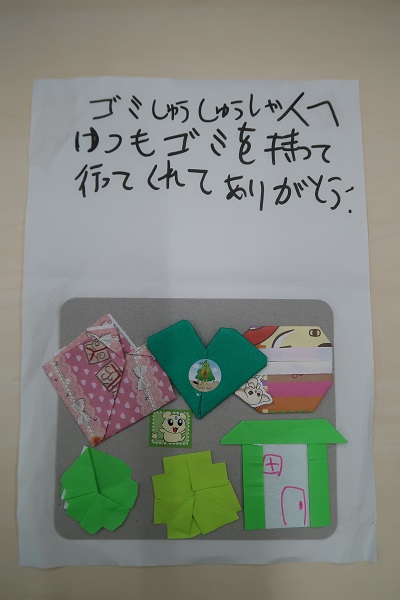 ゴミしゅうしゅうしゃ人へ
いつもゴミを持って
行ってくれてありがとう!